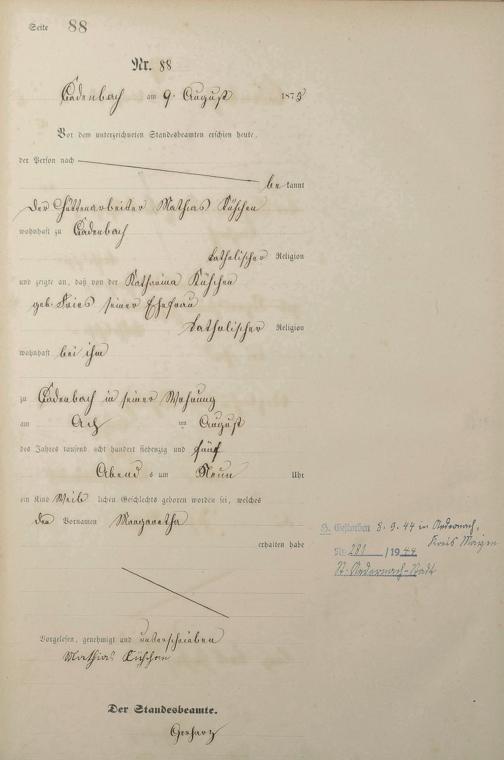 Seite 88
Nr. 88
Cadenbach am 9. August 1875
Vor dem unterzeichneten Standesbeamten erschien heute,
der Person nach
be kannt
der Hüttenarbeiter Mathias Küschen
wohnhaft zu Cadenbach
katholischer Religion
und zeigte an, daß von der Katharina Küschen
geb. Fries seiner Ehefrau
katholischer Religion
wohnhaft bei ihm
zu Cadenbach in seiner Wohnung
am Acht August
des Jahres tausend acht hundert siebenzig und fünf
Abend s um Neun Uhr
ein Kind Weib lichen Geschlechts geboren worden sei, welches
den Vornamen Margaretha
erhalten habe
H. Gestorben 8.9.44 in Andernach,
Kreis Mayen
Nr. 281 /1944
St. Andernach-Stadt
Vorgelesen, genehmigt und unterschrieben
Mathias Küschen
Der Standesbeamte.
Gerharz